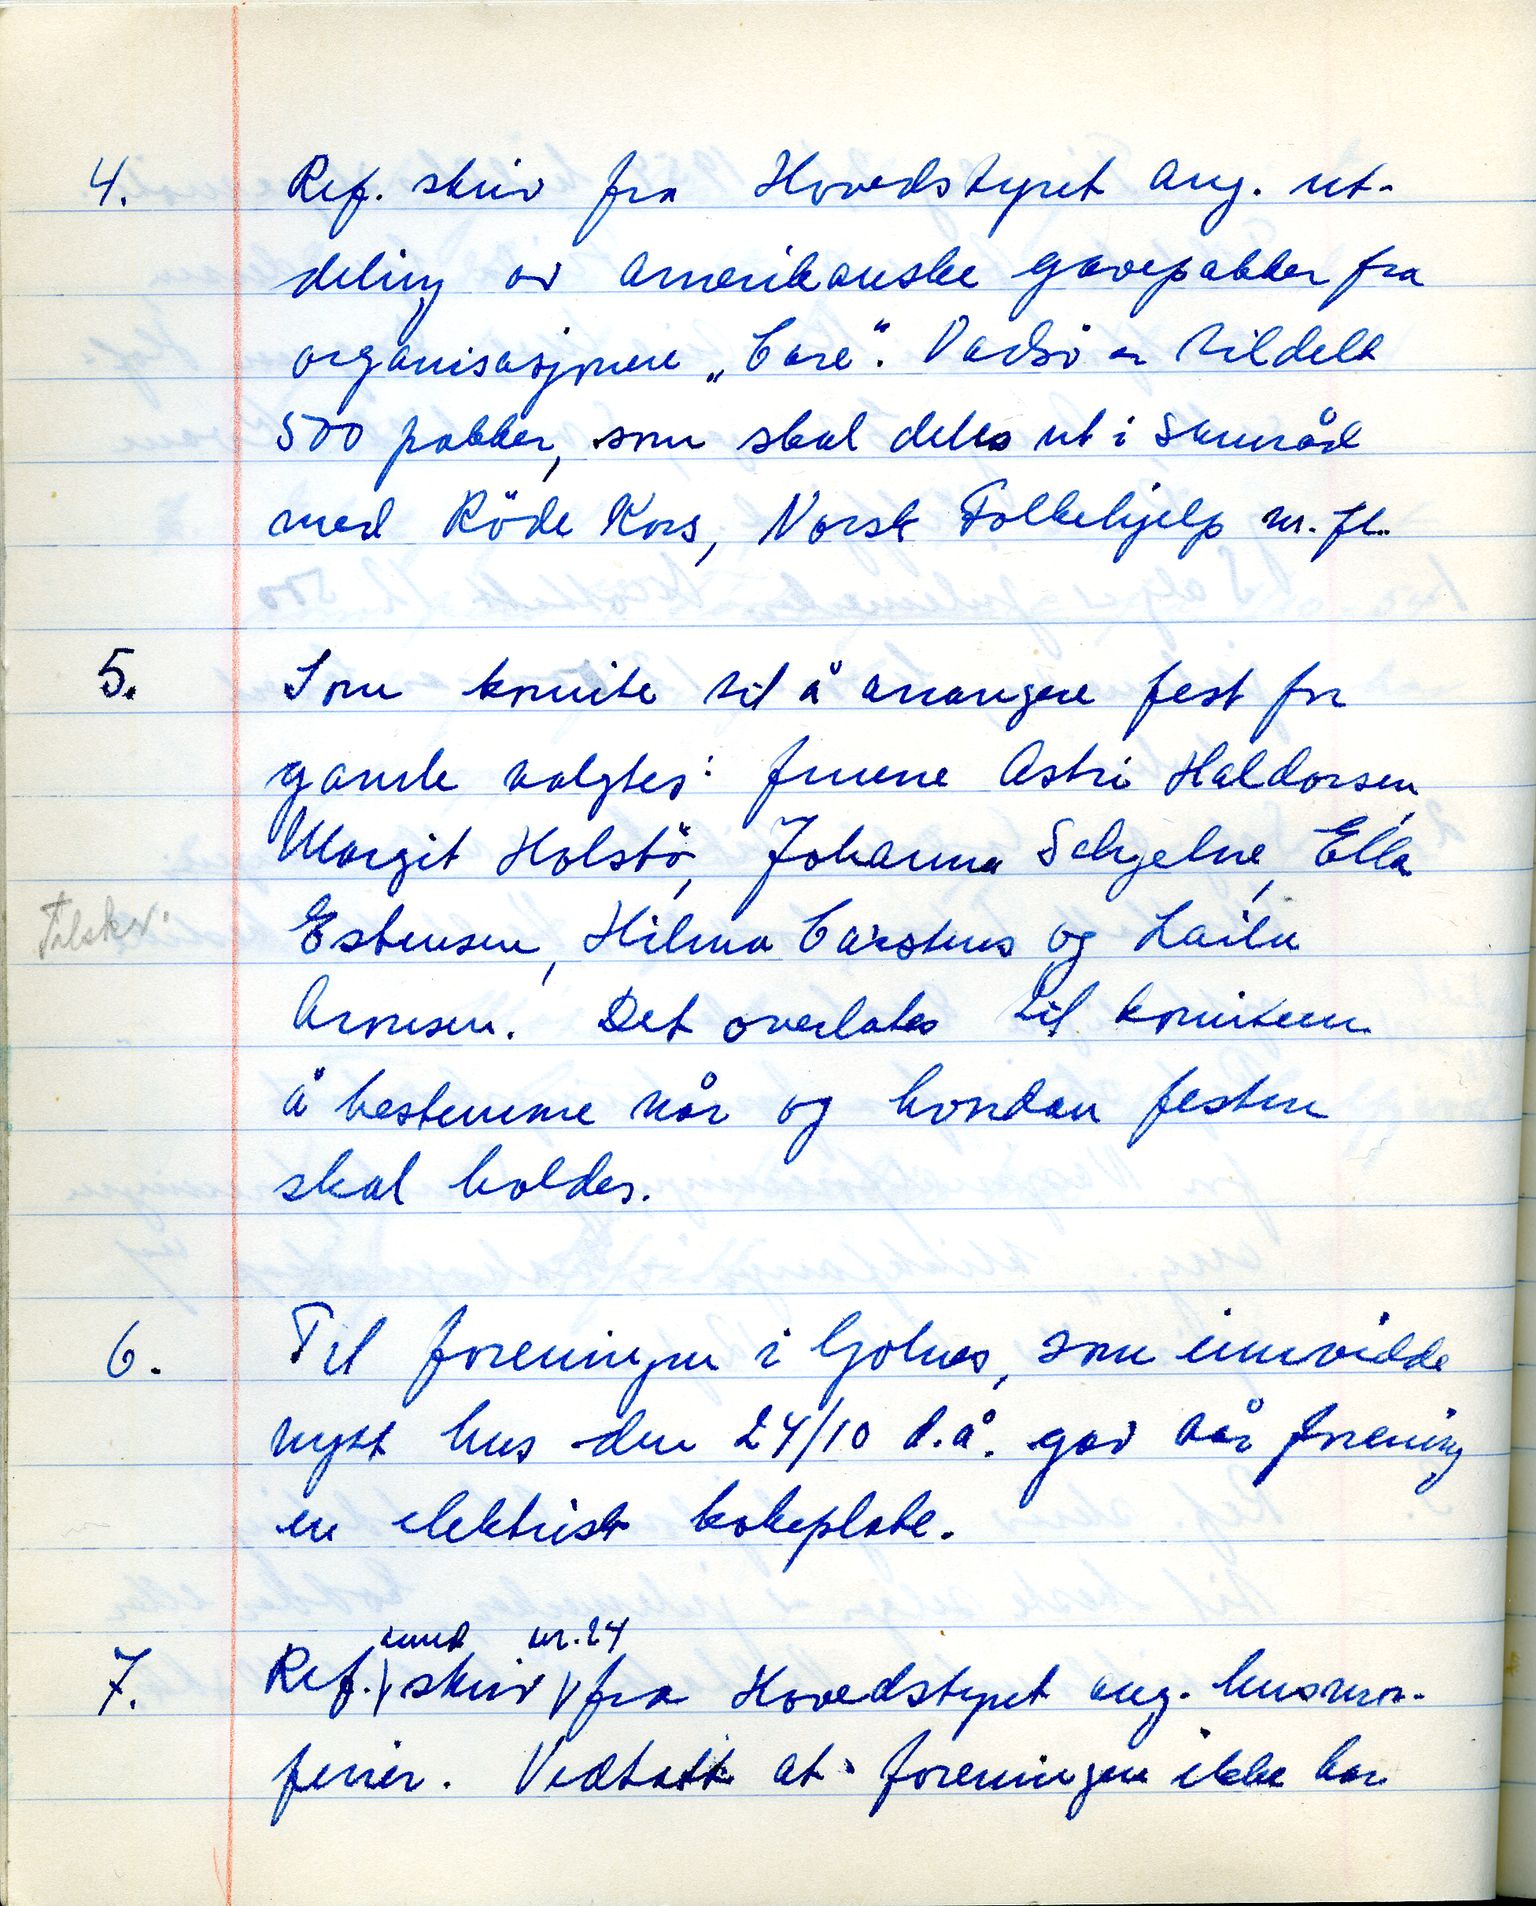 4. Ref. skriv fra Hovedstyret ang. ut-
deling av amerikanske gavepakker fra
organisasjonen „Care”. Vadsö er tildelt
500 pakker, som skal deles ut i samråd
med Röde Kors, Norsk Folkehjelp m. fl.
5. Som komite til å arrangere fest for
gamle valgtes: fruene Astri Haldorsen,
Margit Holstö, Johanna Schjelne, Ella
Estensen, Hilma Carstens og Laila
Aronsen. Det overlates til komiteen
å bestemme når og hvordan festen
skal holdes.
6. Til foreningen i Golnes, som innvidde
nytt hus den 24/10 d.å. gav vår forening
en elektrisk kokeplate.
rund nr. 24
7. Ref. skriv fra Hovedstyret ang. husmor-
ferier. Vedtatt at foreningen ikke har